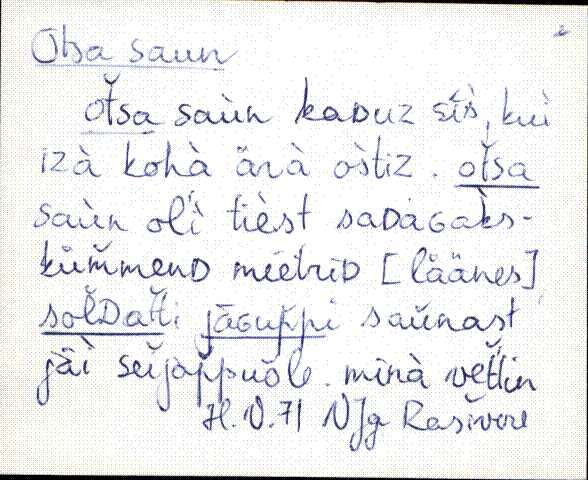 Otsa saun
ot́sa saùn kaᴅuz sìs, kuì
izà kohà ärà òstiz. ot́sa
saùn olì tièst saᴅàɢaks-
kùm̆menᴅ mèetriᴅ [lä̀änes]
sol̆ᴅat́ti jāɢup̆pi saŭnast
jäì seĭjap̆puòle. minà vet̆tin
H. V. 71 VJg Rasivere